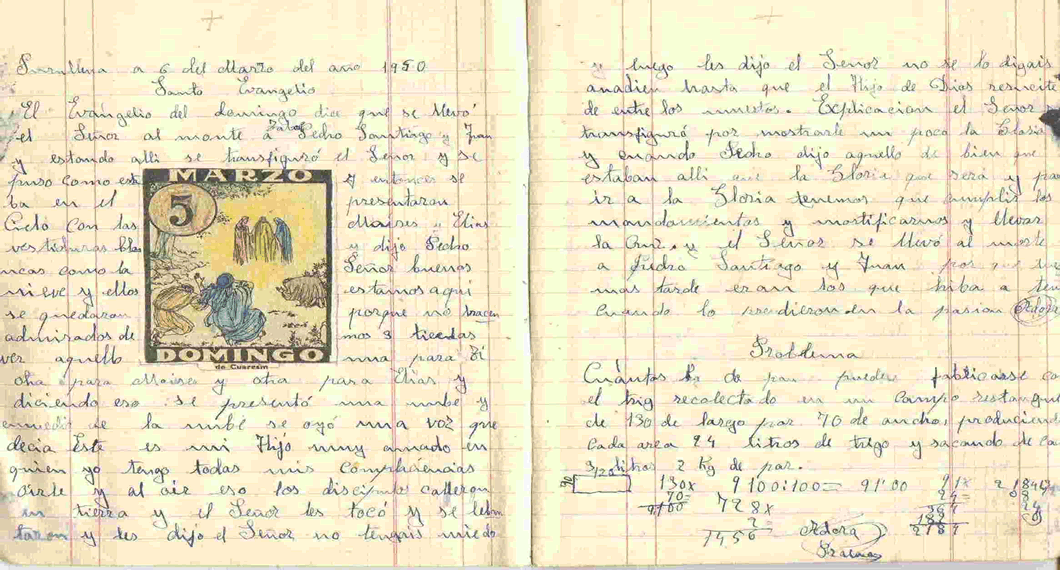 a 6 del Marzo del año 1950
Santo Evangelio
El Evangelio del domingo dice que se llevó
el Señor al monte a Tabor Pedro Santiago y Juan
y estando alli se transfiguró el Señor y se
puso como esta
ba en el
Cielo con las
vestiduras bla
ncas como la
nieve y ellos
se quedaron
admirados de
ver aquello
MARZO
5
DOMINGO
de Cuaresm
y entonces se
presentaron
Moises y Elias
y dijo Pedro
Señor buenos
estamos aqui
porque no hacem
mos 3 tiendas
una para Ti
otra para Moises y otra para Elias y
diciendo eso se presentó una nube y
enmedio de la nube se oyó una voz que
decia Este es mi Hijo muy amado en
quien yo tengo todas mis complaciencias
oirle y al oir eso los discipulos calleron
en tierra y el Señor les tocó y se leban
taron y les dijo el Señor no tengais miedo
y luego les dijo el Señor no se lo digais
anadien hasta que el Hijo de Dios resucite
de entre los muertos. Explicacion el Señor
transfiguró por mostrarle un poco la Gloria
y cuando Pedro dijo aquello de bien que
estaban alli que la Gloria que será y par
ir a la Gloria tenemos que cumplir los
mandamientos y mortificarnos y llevar
la Cruz y el Señor se llevó al monte
a Pedro Santiago y Juan por que
mas tarde eran los que hiba a ten
cuando lo prendieron en la pasion Adora
Problema
Cuántos kg de pan pueden fabricarse co
el trig recolectado en un campo restangul
de 130 de largo por 70 de ancho, produciend
cada area 24 litros de trigo y sacando de ca
3 litros 2 Kg de pan.
70
120
130x 9100:100= 91'00 91x 2184
70= 728x 24=
9100 2 364
1456 182
2184
Adora